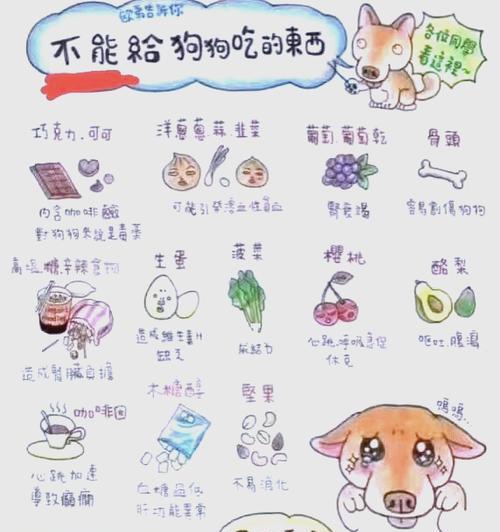 告訴你
不能給狗狗吃的東西
各位同學
看這裡~
巧克力.可可
洋蔥蔥蒜.韭菜
葡萄.葡萄乾
骨頭
內含咖啡鹼
對狗狗來說是毒藥
可能引發溶血性貧血
腎衰竭
容易割傷狗狗
高溫.糖辛辣食物
生蛋
菠菜
櫻桃
酪梨
造成腎臟負擔
造成維生素H
缺乏
尿結石
心跳.呼吸急促
休克
嘔吐.腹瀉
咖啡因
木糖醇
堅果
嗚嗚..
心跳加速
導致癲癇
血糖過低
肝功能異常
不易消化